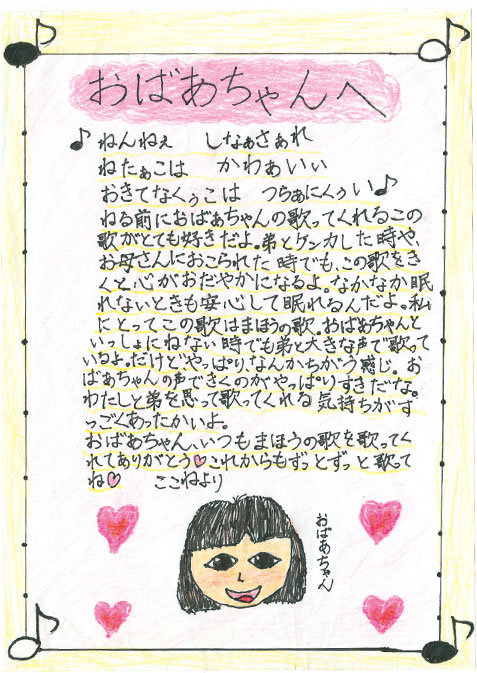 おばあちゃんへ
♪ねんねぇ　しなぁさぁれ
ねたぁこは　かわぁいぃ
おきてなくぅこは　つらぁにくぅい♪
ねる前におばあちゃんの歌ってくれるこの
歌がとても好きだよ。弟とケンカした時や、
お母さんにおこられた時でも、この歌をき
くと心がおだやかになるよ。なかなか眠
れないときも安心して眠れるんだよ。私
にとってこの歌はまほうの歌。おばあちゃんと
いっしょにねない時でも弟と大きな声で歌って
いるよ。だけど、やっぱり、なんかちがう感じ。お
ばあちゃんの声できくのがやっぱりすきだな。
わたしと弟を思って歌ってくれる気持ちがす
っごくあったかいよ。
おばあちゃん、いつもまほうの歌を歌ってく
れてありがとう♡これからもずっとずっと歌って
ね♡　ここねより
おばあちゃん